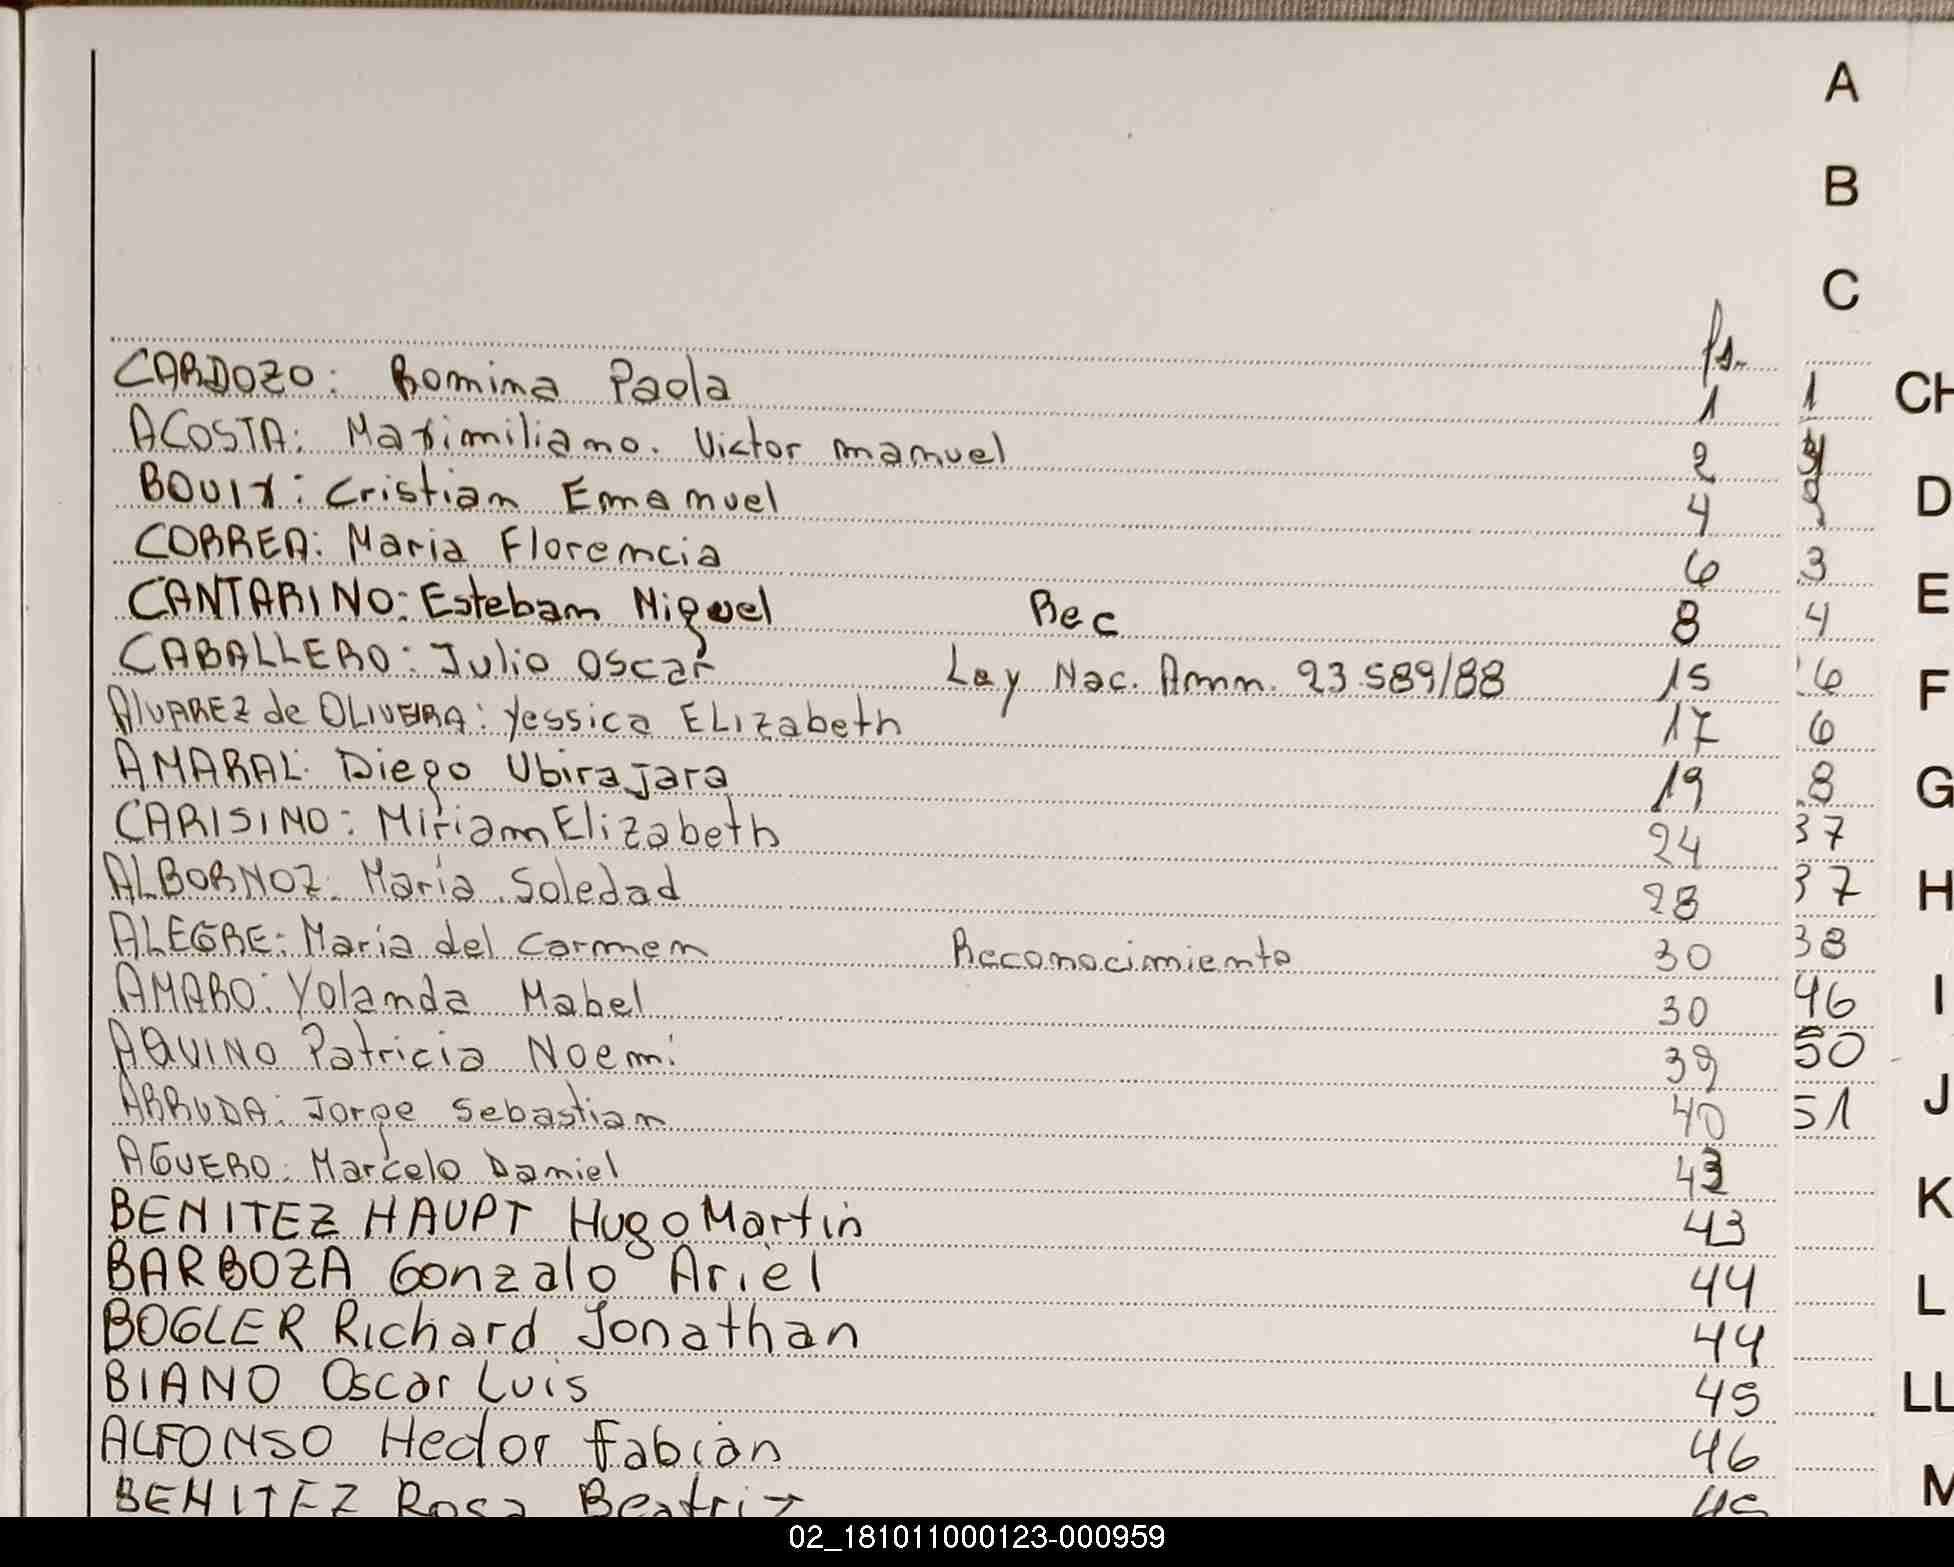 A
B
C
fs.
CARDOZO: Romina Paola 1 1
CH
ACOSTA: Maximiliano. Victor manuel 2
BOUIX: Cristian Emanuel 4
D
CORREA: Maria Florencia 6 3
E
CANTARINO: Esteban Miguel Rec 8 4
CABALLERO: Julio Oscar Ley Nac. Amn. 23589/88 15 6
F
ALVAREZ de OLIVEIRA: Yessica ELizabeth 17 6
AMARAL: Diego Ubirajara 19 8
G
CARISIMO: Miriam Elizabeth 24 37
ALBORNOZ: María Soledad 28 37
H
ALEGRE: María del Carmen Reconocimiento 30 38
AMARO: Yolanda Mabel 30 46
I
AQUINO Patricia Noemi 39 50
ARRUDA: Jorge Sebastian 40 51
J
AGUERO: Marcelo Daniel 43
K
BENITEZ HAUPT Hugo Martin 43
BARBOZA Gonzalo Ariel 44
L
BOGLER Richard Jonathan 44
BIANO Oscar Luis 45
LL
ALFONSO Hector Fabián 46
BENITEZ Rosa Beatriz
M
02_181011000123-000959